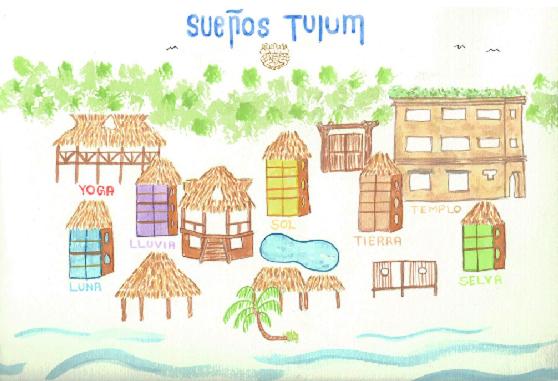 SUEÑOS TULUM
YOGA
LLUVIA
SOL
TIERRA
TEMPLO
LUNA
SELVA